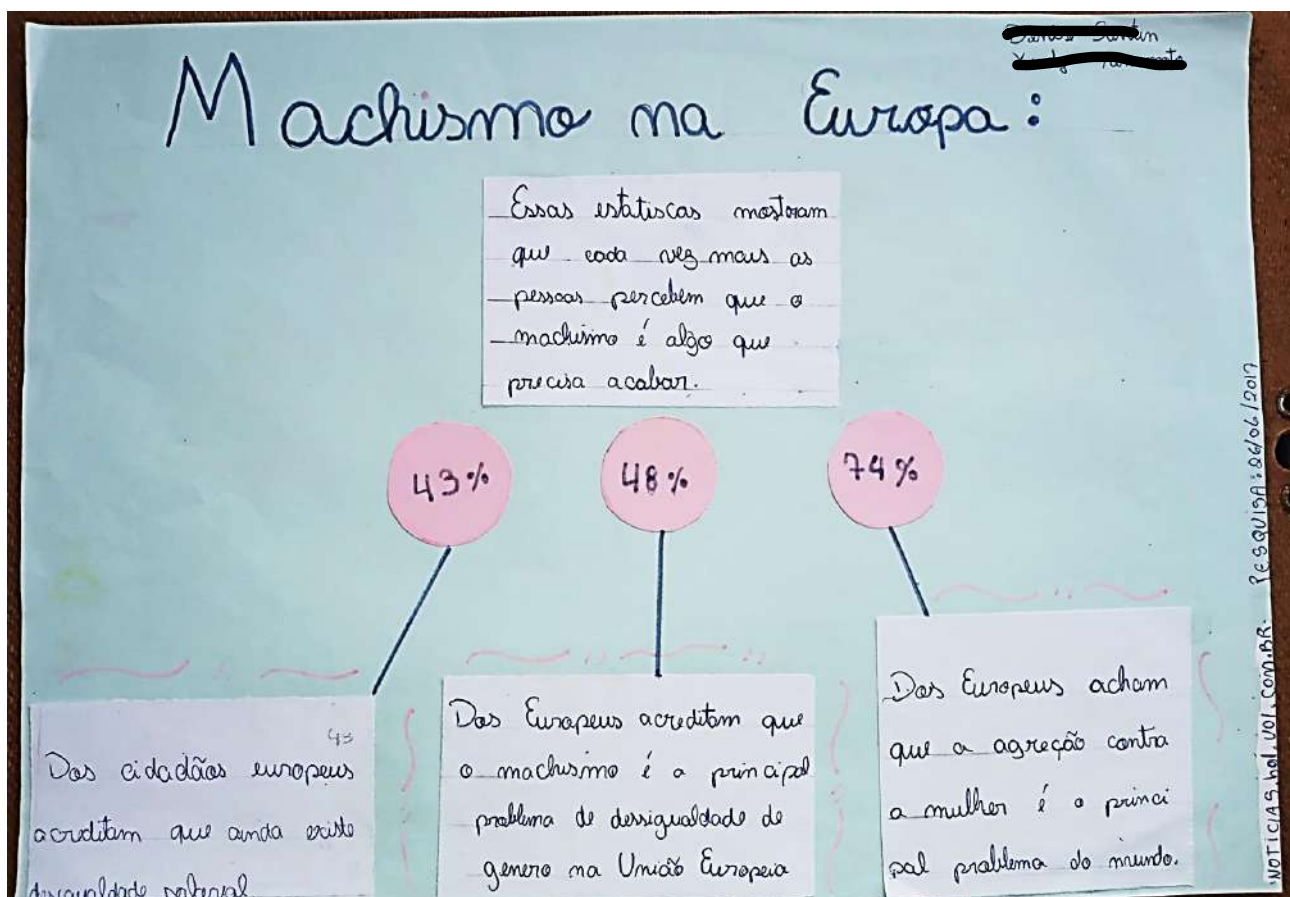 Machismo na Europa:
Essas estatiscas mostram
que cada vez mais as
pessoas percebem que o
machismo é algo que
precisa acabar.
43%
48%
74%
43
Dos cidadãos europeus
acreditam que ainda existe
Dos Europeus acreditam que
o machismo é a principal
problema de dessigualdade de
genero na União Europeia
Dos Europeus acham
que a agreção contra
a mulher é o princi
pal problema do mundo.
PESQUISA: 26/06/2017